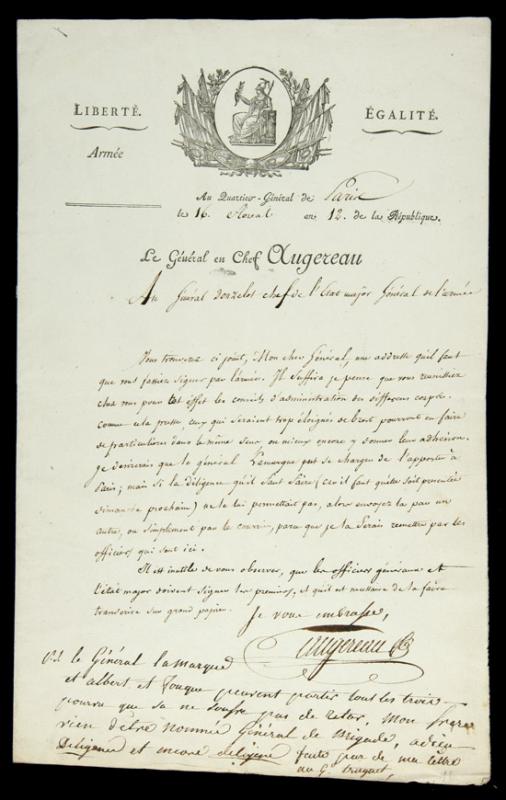 LIBERTÉ. ÉGALITÉ.
Armée
Au Quartier-Général de Paris
le 16. floreal an 12. de la République.
Le Général en Chef Augereau
Au Général Donzelot chef de l'Etat major Général de l'armée
Vous trouverez ci joint, Mon cher Général, une addresse qu'il faut
que vous fassiez signer par l'armée. Il suffira je pense que vous reunissiez
chez vous pour cet effet les conseils d'administration des differens corps.
comme cela presse ceux qui seraient trop éloignés de brest pourront en faire
de particulieres dans le même sens ou mieux encore y donner leur adhesion.
Je desirerais que le général put se charger de l'apporter à
Paris; mais si la diligence qu'il faut faire (car il faut qu'elle soit presentée
dimanche prochain) ne le lui permettait pas, alors envoyez la par un
autre, ou simplement par le courrier, parce que je la ferais remettre par les
officiers qui sont ici.
Il est inutile de vous observer, que les officiers généraux et
l'état major doivent signer les premiers, et qu'il est necessaire de la faire
transcrire sur grand papier.
Je vous embrasse,
Augereau
le Général lamarque
et albert et fouque peuvent partir tout les trois
pourvu que sa ne soufre pas de retar, Mon frere
vien d'etre nommé Général de Brigade, adieu
Diligence et encore diligence faite par de ma lettre
au G. truguet,